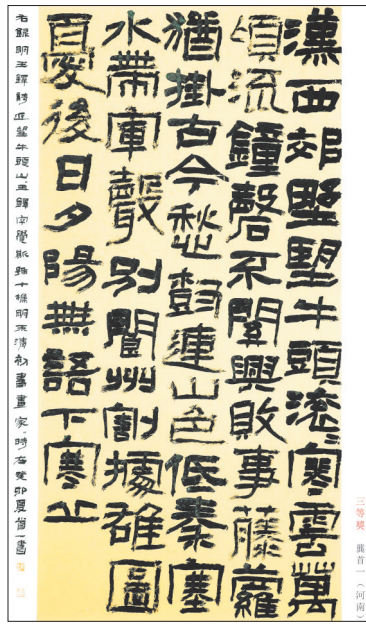 漢西郊墅朢牛頭滾〻寒雲萬
頃流鐘磬不關興敗事藤蘿
猶掛古今愁樹連山色低秦塞
水帶軍聲別閬州割據雄圖
百憂後日夕陽無語下寒丘
右録明王鐸詩近望牛頭山王鐸字覺斯號十樵明末清初書畫家時在癸卯夏首一書
三等獎 龔首一（河南）